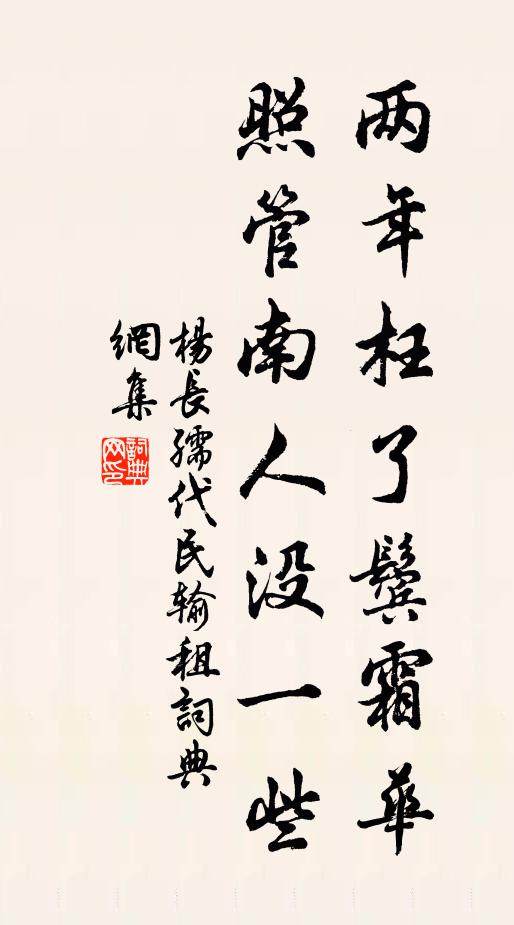 两年枉了鬓霜华
照管南人没一些
楊長孺代民输租詞典
網集
詞典网印